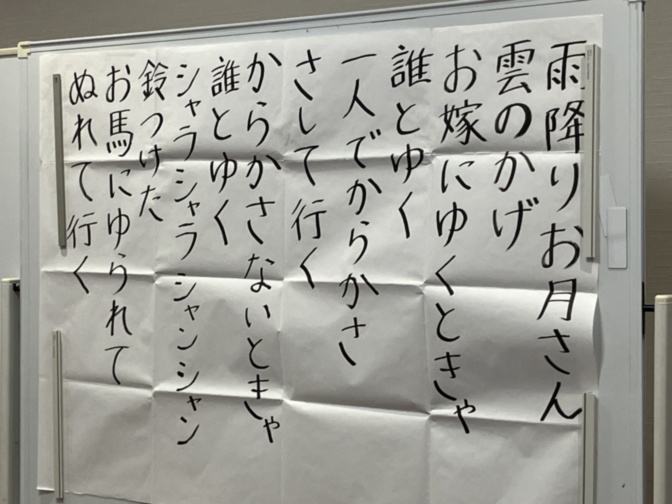 雨降りお月さん
雲のかげ
お嫁にゆくときゃ
誰とゆく
一人でからかさ
さして行く
からかさないときゃ
誰とゆく
シャラシャラシャンシャン
鈴つけた
お馬にゆられて
ぬれて行く